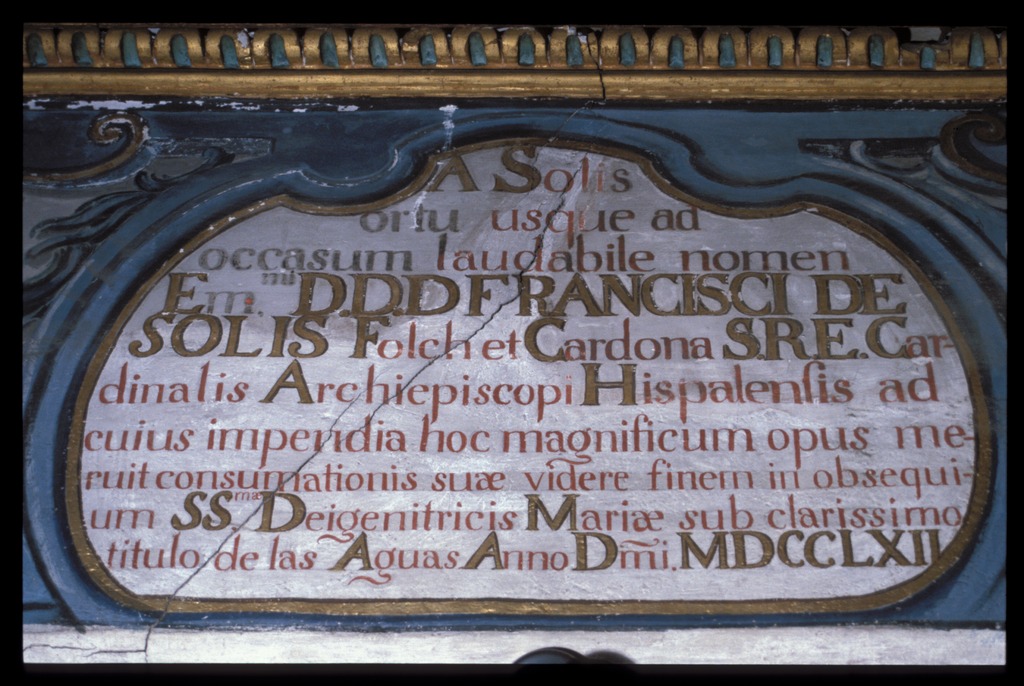 A Solis
ortu usque ad
occasum laudabile nomen
Em.mi D.D.D FRANCISCI DE
SOLIS Folch et Cardona S.R.E. Car-
dinalis Archiepiscopi Hispalenſis ad
cuius impendia hoc magnificum opus me-
ruit consumationis suæ videre finem in obsequi-
um SS.mæ Deigenitricis Mariæ sub clarissimo
titulo de las Aguas Anno Dm̃i. MDCCLXII